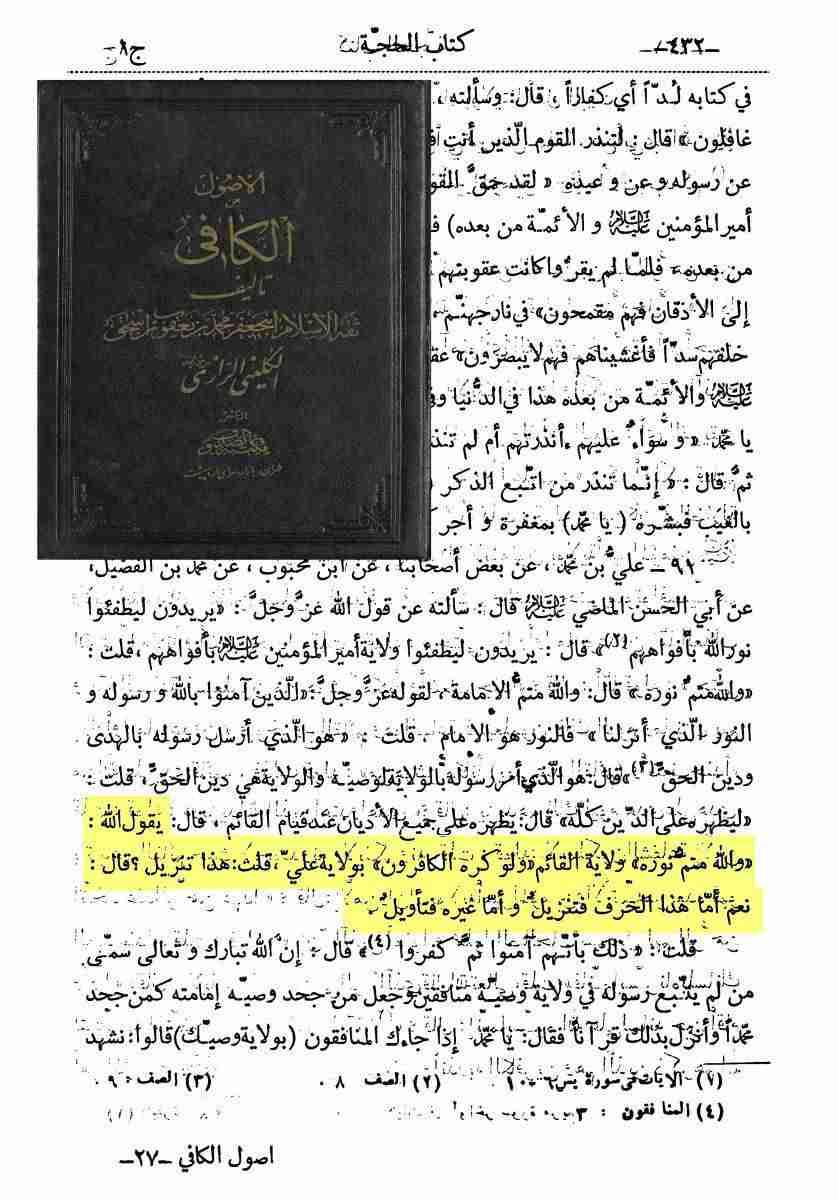 -٤٣٢- كتاب الحجّة ج ١
في كتابه لُدّاً أي كفاراً ، قال : وسألته
غافلون » قال : لتنذر القوم الّذين أنت
عن رسوله وعن وعيده « لقد حقَّ القو
أمير المؤمنين عليه السلام و الأئمّة من بعده)
من بعده ، فلمّا لم يقرّوا كانت عقوبتهم
إلى الأذقان فهم مقمحون» في نار جهنّم ،
خلفهم سدّاً فأغشيناهم فهم لا يبصرون»
عليه السلام والأئمّة من بعده هذا في الدُّنيا
يا محمّد « و سواءٌ عليهم ءأنذرتهم أم لم تنذ
ثمَّ قال : « إنّما تنذر من اتّبع الذكر
بالغيب فبشّره ( يا محمّد) بمغفرة و أجر
الاصول
من
الكافي
تأليف
ثقة الاسلام ابي جعفر محمد بن يعقوب بن اسحق
الكليني الرازي
الناشر
٩١ ــ عليُّ بن محمّد ، عن بعض أصحابنا ، عن ابن محبوب ، عن محمّد بن الفضيل،
عن أبي الحسن الماضي عليه السلام قال : سألته عن قول الله عزَّ وجلَّ : «يريدون ليطفئوا
نور الله بأفواههم (٢)» قال : يريدون ليطفئوا ولاية أمير المؤمنين عليه السلام بأفواههم ، قلت :
«والله متمُّ نوره» قال: والله متمُّ الإمامة ، لقوله عزَّ وجلَّ: «الّذين آمنوا بالله و رسوله و
النور الّذي أنزلنا » فالنور هو الإمام . قلت : « هو الّذي أرسل رسوله بالهدى
ودين الحقّ (٣)» قال: هو الّذي أمر رسوله بالولاية لوصيّه والولاية هي دين الحقّ ، قلت :
«ليظهره على الدّين كلّه» قال: يظهره على جميع الأديان عند قيام القائم ، قال: يقول الله :
«والله متمُّ نوره» ولاية القائم «ولو كره الكافرون» بولاية عليّ ، قلت: هذا تنزيل ؟ قال :
نعم أمّا هذا الحرف فتنزيلٌ و أمّا غيره فتأويلٌ .
قلت : « ذلك بأنّهم آمنوا ثمَّ كفروا (٤)» قال : إنَّ الله تبارك و تعالى سمّى
من لم يتّبع رسوله في ولاية وصيّه منافقين وجعل من جحد وصيّه إمامته كمن جحد
محمّداً وأنزل بذلك قرآناً فقال: يا محمّد إذا جاءك المنافقون (بولاية وصيّك) قالوا: نشهد
(١) الآيات في سورة يس ٦ - ١٠ . (٢) الصف ٨ . (٣) الصف : ٩ .
(٤) المنافقون : ٣
اصول الكافي -٢٧-